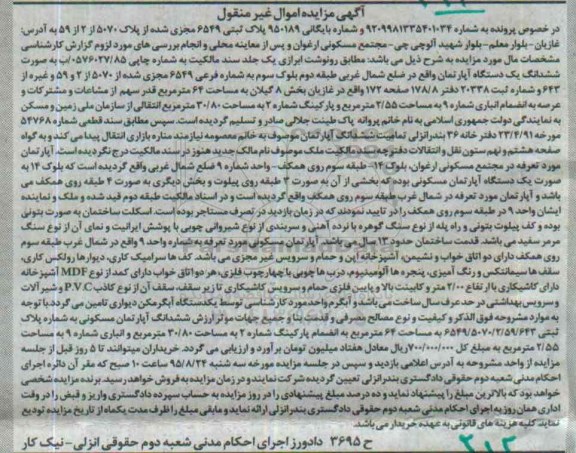 آگهی مزایده اموال غیر منقول
در خصوص پرونده به شماره ۹۲۰۹۹۸۱۳۳۵۴۰۱۰۳۴ و شماره بایگانی ۹۵۰۱۸۹ پلاک ثبتی ۶۵۴۹ مجزی شده از پلاک ۵۰۷۰ از ۲ از ۵۹ به آدرس:
غازیان - بلوار معلم - بلوار شهید آلوچی چی - مجتمع مسکونی ارغوان و پس از معاینه محلی و انجام بررسی های مورد لزوم گزارش کارشناسی
مشخصات مال مورد مزایده به شرح ذیل می باشد: مطابق رونوشت ابرازی یک جلد سند مالکیت به شماره چاپی ۰۵۷۶۰۲۷/۸۵ب به صورت
ششدانگ یک دستگاه آپارتمان واقع در ضلع شمال غربی طبقه دوم بلوک سوم به شماره فرعی ۶۵۴۹ مجزی شده از ۵۰۷۰ از ۲ و ۵۹ و غیره از
۶۴۳ و شماره ثبت ۲۰۳۳۸ دفتر ۱۷۸/۸ صفحه ۱۷۲ واقع در غازیان بخش ۸ گیلان به مساحت ۶۴ مترمربع قدر سهم از مشاعات و مشترکات و
عرصه به انضمام انباری شماره ۹ به مساحت ۲/۵۵ مترمربع و پارکینگ شماره ۲ به مساحت ۳۰/۸۰ مترمربع انتقالی از سازمان ملی زمین و مسکن
به نمایندگی دولت جمهوری اسلامی به نام خانم پروانه پاک طینت جلالی صادر و تسلیم گردیده است. سپس مطابق سند قطعی شماره ۵۴۷۶۸
مورخه ۲۳/۴/۹۱ دفتر خانه ۳۶ بندرانزلی تمامت ششدانگ آپارتمان موصوف به خانم معصومه نیازمند مناره بازاری انتقال پیدا می کند و به گواه
صفحه هشتم و نهم ستون نقل و انتقالات دفترچه سند مالکیت ملک موصوف نام مالک جدید هنوز در سند مالکیت درج نگردیده است. آپارتمان
مورد تعرفه در مجتمع مسکونی ارغوان، بلوک ۱۴ - طبقه سوم روی همکف - واحد شماره ۹ ضلع شمال غربی واقع گردیده است که بلوک ۱۴ به
صورت یک دستگاه آپارتمان مسکونی بوده که بخشی از آن به صورت ۳ طبقه روی پیلوت و بخش دیگری به صورت ۴ طبقه روی همکف می
باشد و آپارتمان مورد تعرفه در شمال غرب طبقه سوم روی همکف واقع گردیده است و در اسناد مالکیت طبقه دوم قید شده و ملک و نماینده
ایشان واحد ۹ در طبقه سوم روی همکف را تایید نمودند که در زمان بازدید در تصرف مستاجر بوده است. اسکلت ساختمان به صورت بتونی
بوده و کف پیلوت بتونی و راه پله از نوع سنگ گوهره با نرده آهنی و سربندی از نوع شیروانی چوبی با پوشش ایرانیت و نمای آن از نوع سنگ
مرمر سفید می باشد. قدمت ساختمان حدود ۱۳ سال می باشد. آپارتمان مسکونی مورد تعرفه به شماره واحد ۹ واقع در شمال غرب طبقه سوم
روی همکف دارای دو اتاق خواب و نشیمن، آشپزخانه اپن و حمام و سرویس غیر مجزی می باشد. کف ها سرامیک کاری، دیوارها رولکس کاری،
سقف ها سیمانتکس و رنگ آمیزی، پنجره ها آلومینیوم، درب ها چوبی با چهارچوب فلزی، هر دو اتاق خواب دارای کمد از نوع MDF آشپزخانه
دارای کاشیکاری با ارتفاع ۲/۰۰ متر و کابینت بالا و پایین فلزی حمام و سرویس کاشیکاری تا زیر سقف، سقف آن از نوع کاذب P.V.C و شیرآلات
و سرویس بهداشتی در حد عرف سال ساخت می باشد و آبگرم واحد مورد کارشناسی توسط یکدستگاه آبگرمکن دیواری تامین می گردد. با توجه
به موارد مشروحه فوق الذکر و کیفیت و نوع مصالح مصرفی و قدمت بنا و جمیع جهات موثر ارزش ششدانگ آپارتمان مسکونی به شماره پلاک
ثبتی ۶۵۴۹/۵۰۷۰/۲/۵۹/۶۴۳ به مساحت ۶۴ مترمربع به انضمام پارکینگ شماره ۲ به مساحت ۳۰/۸۰ مترمربع و انباری شماره ۹ به مساحت
۲/۵۵ مترمربع به مبلغ کل ۷۰۰/۰۰۰/۰۰۰ ریال معادل هفتاد میلیون تومان برآورد و ارزیابی می گردد. خریداران میتوانند تا ۵ روز قبل از جلسه
مزایده از واحد مشروحه به آدرس اعلامی بازدید و سپس در جلسه مزایده مورخه سه شنبه ۹۵/۸/۲۴ ساعت ۱۰ صبح که مقر آن دائره اجرای
احکام مدنی شعبه دوم حقوقی دادگستری بندرانزلی تعیین گردیده شرکت نمایند و در زمان مزایده به فروش خواهد رسید. برنده مزایده شخصی
خواهد بود که بالاترین مبلغ را پیشنهاد نماید و ده درصد مبلغ پیشنهادی را در روز مزایده به حساب سپرده دادگستری واریز و قبض را در وقت
اداری همان روز به اجرای احکام مدنی شعبه دوم حقوقی دادگستری بندرانزلی ارائه نماید و مابقی مبلغ را ظرف مدت یکماه از تاریخ مزایده تودیع
نماید. کلیه هزینه های قانونی به عهده خریدار می باشد.
ح ۳۶۹۵ دادورز اجرای احکام مدنی شعبه دوم حقوقی انزلی - نیک کار
۲۱۲